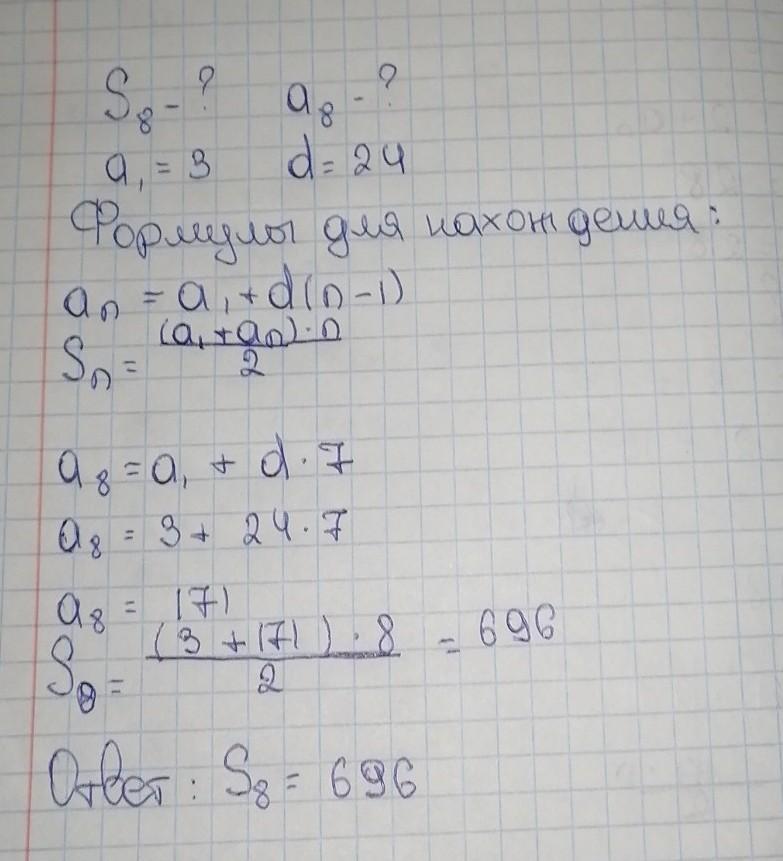 S₈ - ? a₈ - ?
a₁ = 3 d = 24
Формулы для нахождения:
aₙ = a₁ + d(n-1)
Sₙ = (a₁ + aₙ) · n / 2
a₈ = a₁ + d · 7
a₈ = 3 + 24 · 7
a₈ = 171
S₈ = (3 + 171) · 8 / 2 = 696
Ответ: S₈ = 696